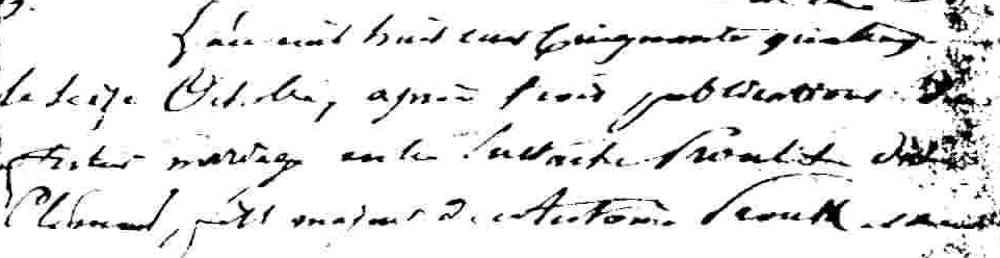 L'an mil huit cent cinquante quatre
le seize Octobre, après trois publications de
mariage entre Eustache Proulx dit
Clément, fils majeur de Antoine Proulx